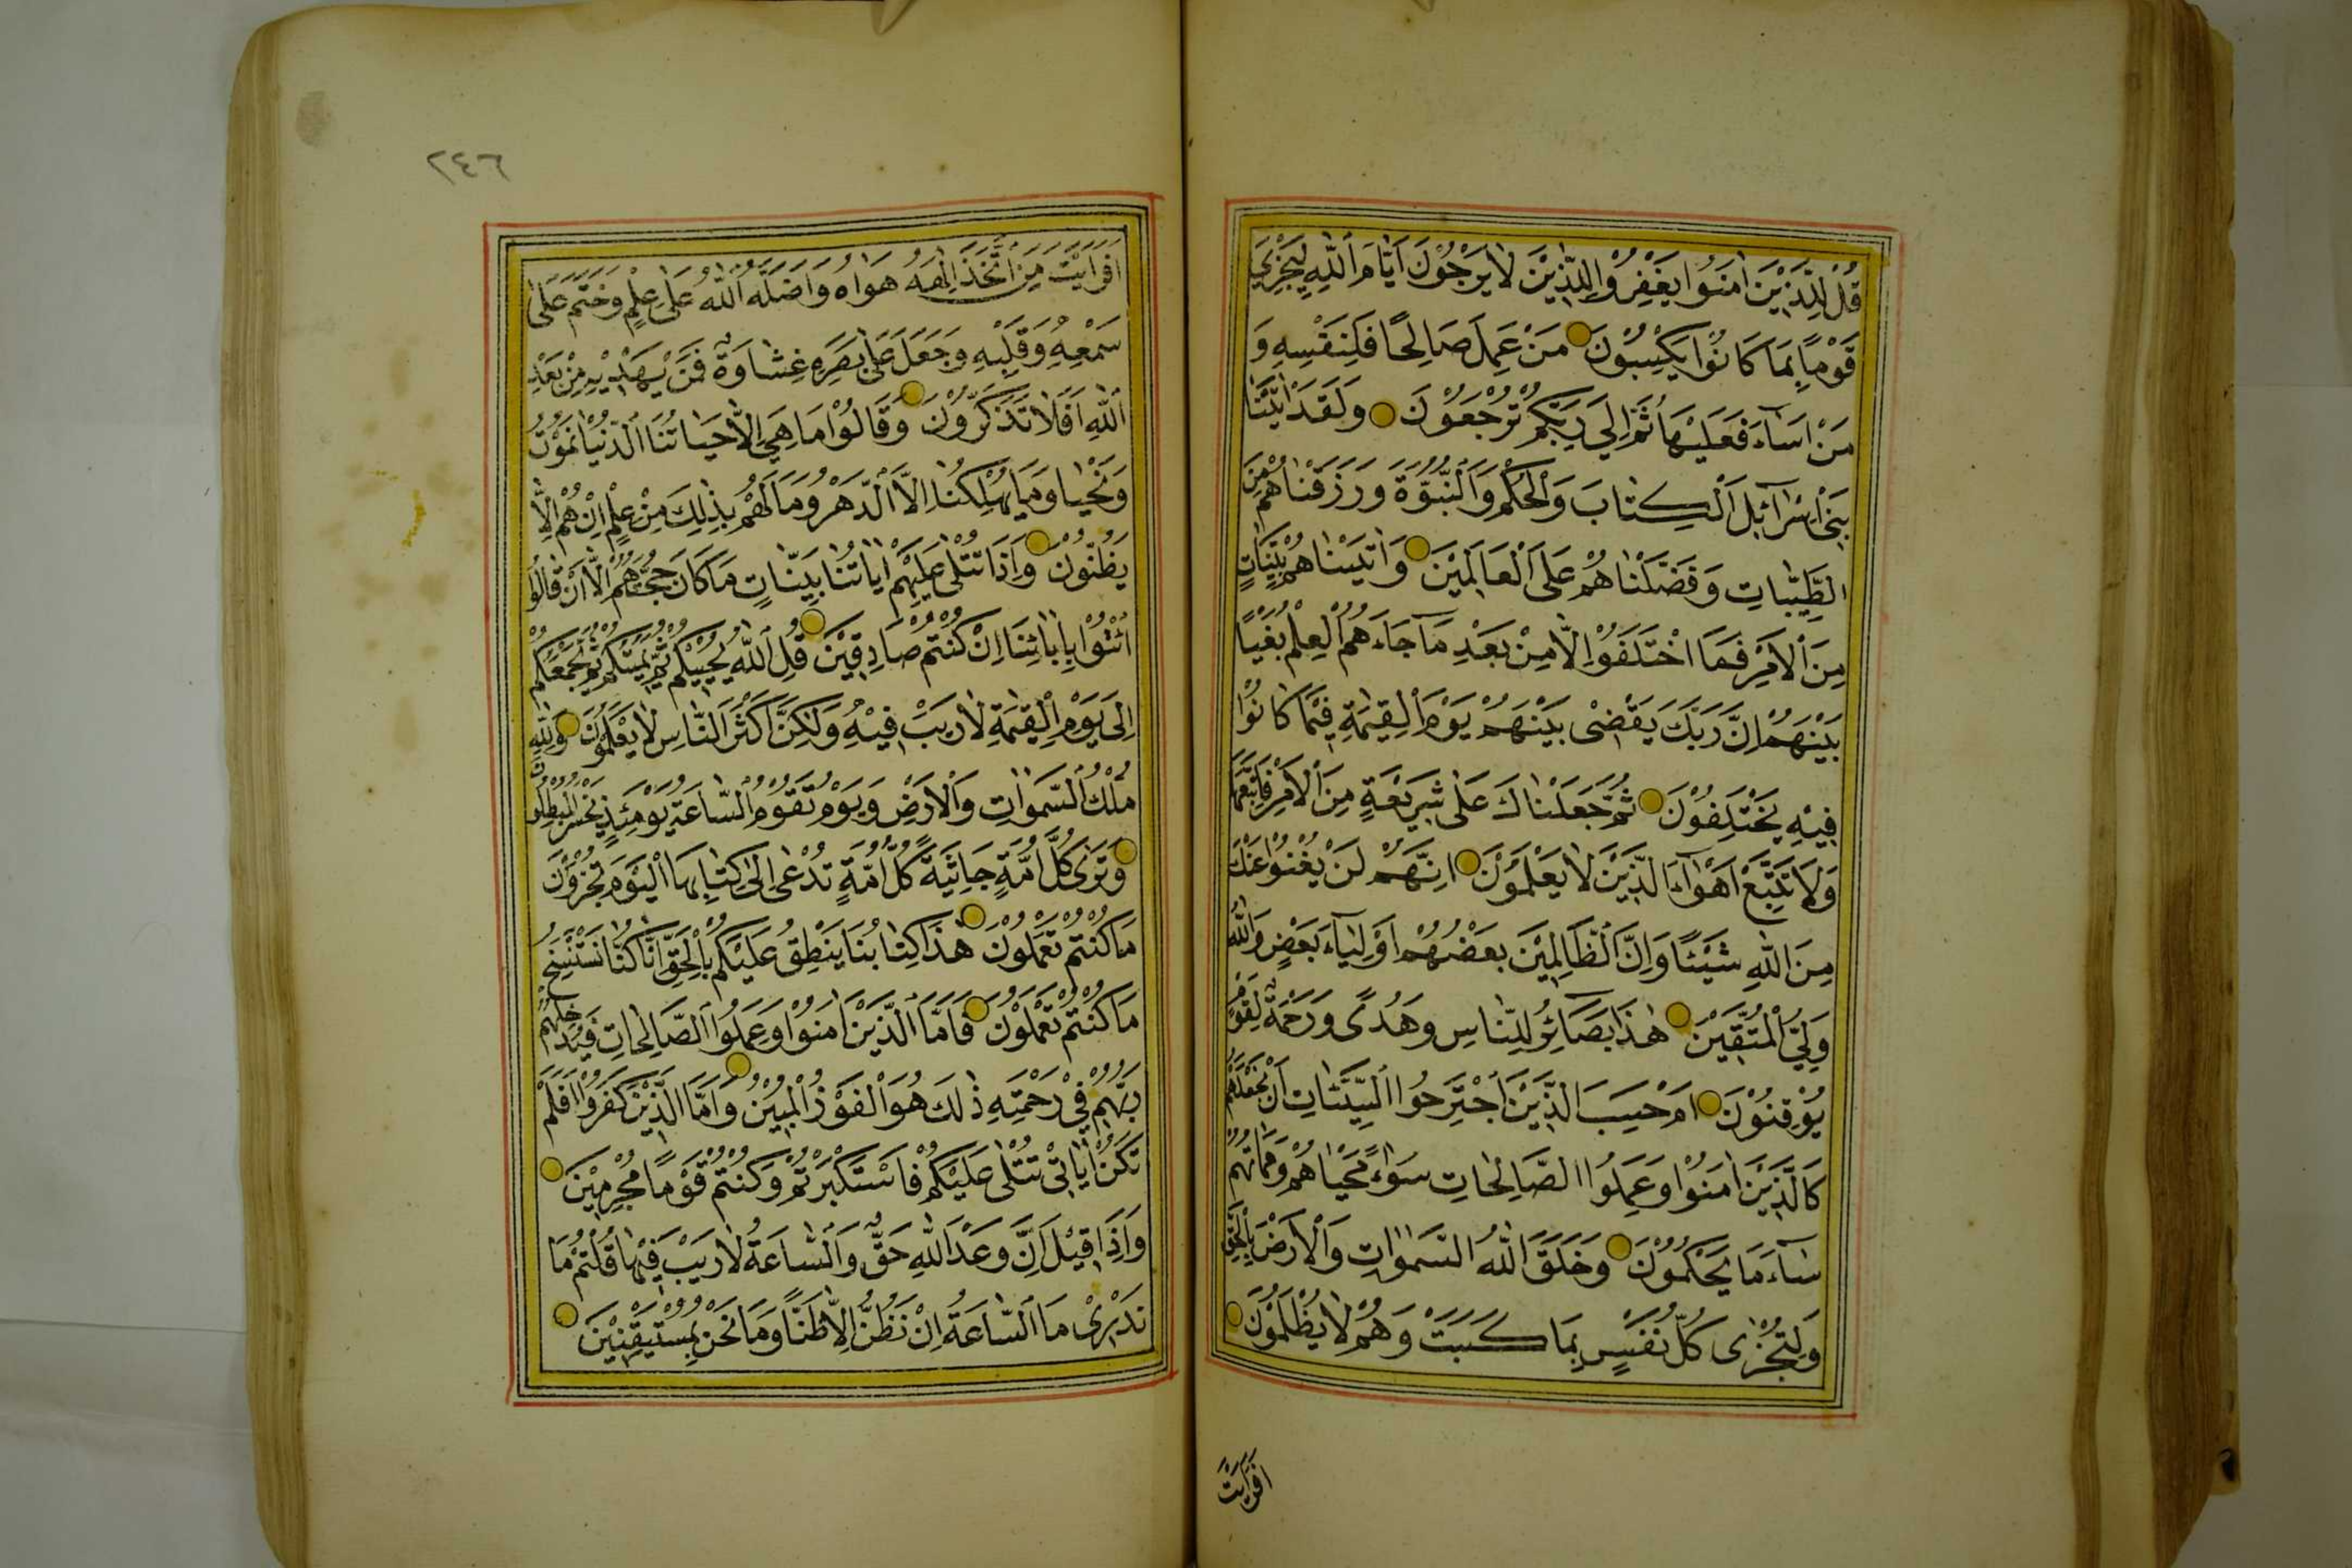 قُلْ لِلَّذِيْنَ اٰمَنُوا يَغْفِرُوْا لِلَّذِيْنَ لَا يَرْجُوْنَ اَيَّامَ اللّٰهِ لِيَجْزِيَ
قَوْمًا بِمَا كَانُوْا يَكْسِبُوْنَ مَنْ عَمِلَ صَالِحًا فَلِنَفْسِهٖ وَ
مَنْ اَسَآءَ فَعَلَيْهَا ثُمَّ اِلٰى رَبِّكُمْ تُرْجَعُوْنَ وَلَقَدْ اٰتَيْنَا
بَنِيْ اِسْرَآئِلَ الْكِتَابَ وَالْحُكْمَ وَالنُّبُوَّةَ وَرَزَقْنَاهُمْ مِنَ
الطَّيِّبَاتِ وَفَضَّلْنَاهُمْ عَلَى الْعَالَمِيْنَ وَاٰتَيْنَاهُمْ بَيِّنَاتٍ
مِنَ الْاَمْرِ فَمَا اخْتَلَفُوْا اِلَّا مِنْ بَعْدِ مَا جَآءَهُمُ الْعِلْمُ بَغْيًا
بَيْنَهُمْ اِنَّ رَبَّكَ يَقْضِيْ بَيْنَهُمْ يَوْمَ الْقِيٰمَةِ فِيْمَا كَانُوْا
فِيْهِ يَخْتَلِفُوْنَ ثُمَّ جَعَلْنَاكَ عَلٰى شَرِيْعَةٍ مِنَ الْاَمْرِ فَاتَّبِعْهَا
وَلَا تَتَّبِعْ اَهْوَآءَ الَّذِيْنَ لَا يَعْلَمُوْنَ اِنَّهُمْ لَنْ يُغْنُوْا عَنْكَ
مِنَ اللّٰهِ شَيْئًا وَاِنَّ الظَّالِمِيْنَ بَعْضُهُمْ اَوْلِيَآءُ بَعْضٍ وَاللّٰهُ
وَلِيُّ الْمُتَّقِيْنَ هٰذَا بَصَائِرُ لِلنَّاسِ وَهُدًى وَرَحْمَةٌ لِقَوْمٍ
يُوْقِنُوْنَ اَمْ حَسِبَ الَّذِيْنَ اجْتَرَحُوا السَّيِّئَاتِ اَنْ نَجْعَلَهُمْ
كَالَّذِيْنَ اٰمَنُوْا وَعَمِلُوا الصَّالِحَاتِ سَوَآءً مَحْيَاهُمْ وَمَمَاتُهُمْ
سَآءَ مَا يَحْكُمُوْنَ وَخَلَقَ اللّٰهُ السَّمٰوَاتِ وَالْاَرْضَ بِالْحَقِّ
وَلِتُجْزٰى كُلُّ نَفْسٍ بِمَا كَسَبَتْ وَهُمْ لَا يُظْلَمُوْنَ
افرايت
٢٤٦
اَفَرَاَيْتَ مَنِ اتَّخَذَ اِلٰهَهُ هَوَاهُ وَاَضَلَّهُ اللّٰهُ عَلٰى عِلْمٍ وَخَتَمَ عَلٰى
سَمْعِهٖ وَقَلْبِهٖ وَجَعَلَ عَلٰى بَصَرِهٖ غِشَاوَةً فَمَنْ يَهْدِيْهِ مِنْ بَعْدِ
اللّٰهِ اَفَلَا تَذَكَّرُوْنَ وَقَالُوْا مَا هِيَ اِلَّا حَيَاتُنَا الدُّنْيَا نَمُوْتُ
وَنَحْيَا وَمَا يُهْلِكُنَا اِلَّا الدَّهْرُ وَمَا لَهُمْ بِذٰلِكَ مِنْ عِلْمٍ اِنْ هُمْ اِلَّا
يَظُنُّوْنَ وَاِذَا تُتْلٰى عَلَيْهِمْ اٰيَاتُنَا بَيِّنَاتٍ مَا كَانَ حُجَّتَهُمْ اِلَّا اَنْ قَالُوْا
ائْتُوْا بِاٰبَائِنَا اِنْ كُنْتُمْ صَادِقِيْنَ قُلِ اللّٰهُ يُحْيِيْكُمْ ثُمَّ يُمِيْتُكُمْ ثُمَّ يَجْمَعُكُمْ
اِلٰى يَوْمِ الْقِيٰمَةِ لَا رَيْبَ فِيْهِ وَلٰكِنَّ اَكْثَرَ النَّاسِ لَا يَعْلَمُوْنَ وَلِلّٰهِ
مُلْكُ السَّمٰوَاتِ وَالْاَرْضِ وَيَوْمَ تَقُوْمُ السَّاعَةُ يَوْمَئِذٍ يَخْسَرُ الْمُبْطِلُوْنَ
وَتَرٰى كُلَّ اُمَّةٍ جَاثِيَةً كُلُّ اُمَّةٍ تُدْعٰى اِلٰى كِتَابِهَا الْيَوْمَ تُجْزَوْنَ
مَا كُنْتُمْ تَعْمَلُوْنَ هٰذَا كِتَابُنَا يَنْطِقُ عَلَيْكُمْ بِالْحَقِّ اِنَّا كُنَّا نَسْتَنْسِخُ
مَا كُنْتُمْ تَعْمَلُوْنَ فَاَمَّا الَّذِيْنَ اٰمَنُوْا وَعَمِلُوا الصَّالِحَاتِ فَيُدْخِلُهُمْ
رَبُّهُمْ فِيْ رَحْمَتِهٖ ذٰلِكَ هُوَ الْفَوْزُ الْمُبِيْنُ وَاَمَّا الَّذِيْنَ كَفَرُوْا اَفَلَمْ
تَكُنْ اٰيَاتِيْ تُتْلٰى عَلَيْكُمْ فَاسْتَكْبَرْتُمْ وَكُنْتُمْ قَوْمًا مُجْرِمِيْنَ
وَاِذَا قِيْلَ اِنَّ وَعْدَ اللّٰهِ حَقٌّ وَالسَّاعَةُ لَا رَيْبَ فِيْهَا قُلْتُمْ مَا
نَدْرِيْ مَا السَّاعَةُ اِنْ نَظُنُّ اِلَّا ظَنًّا وَمَا نَحْنُ بِمُسْتَيْقِنِيْنَ